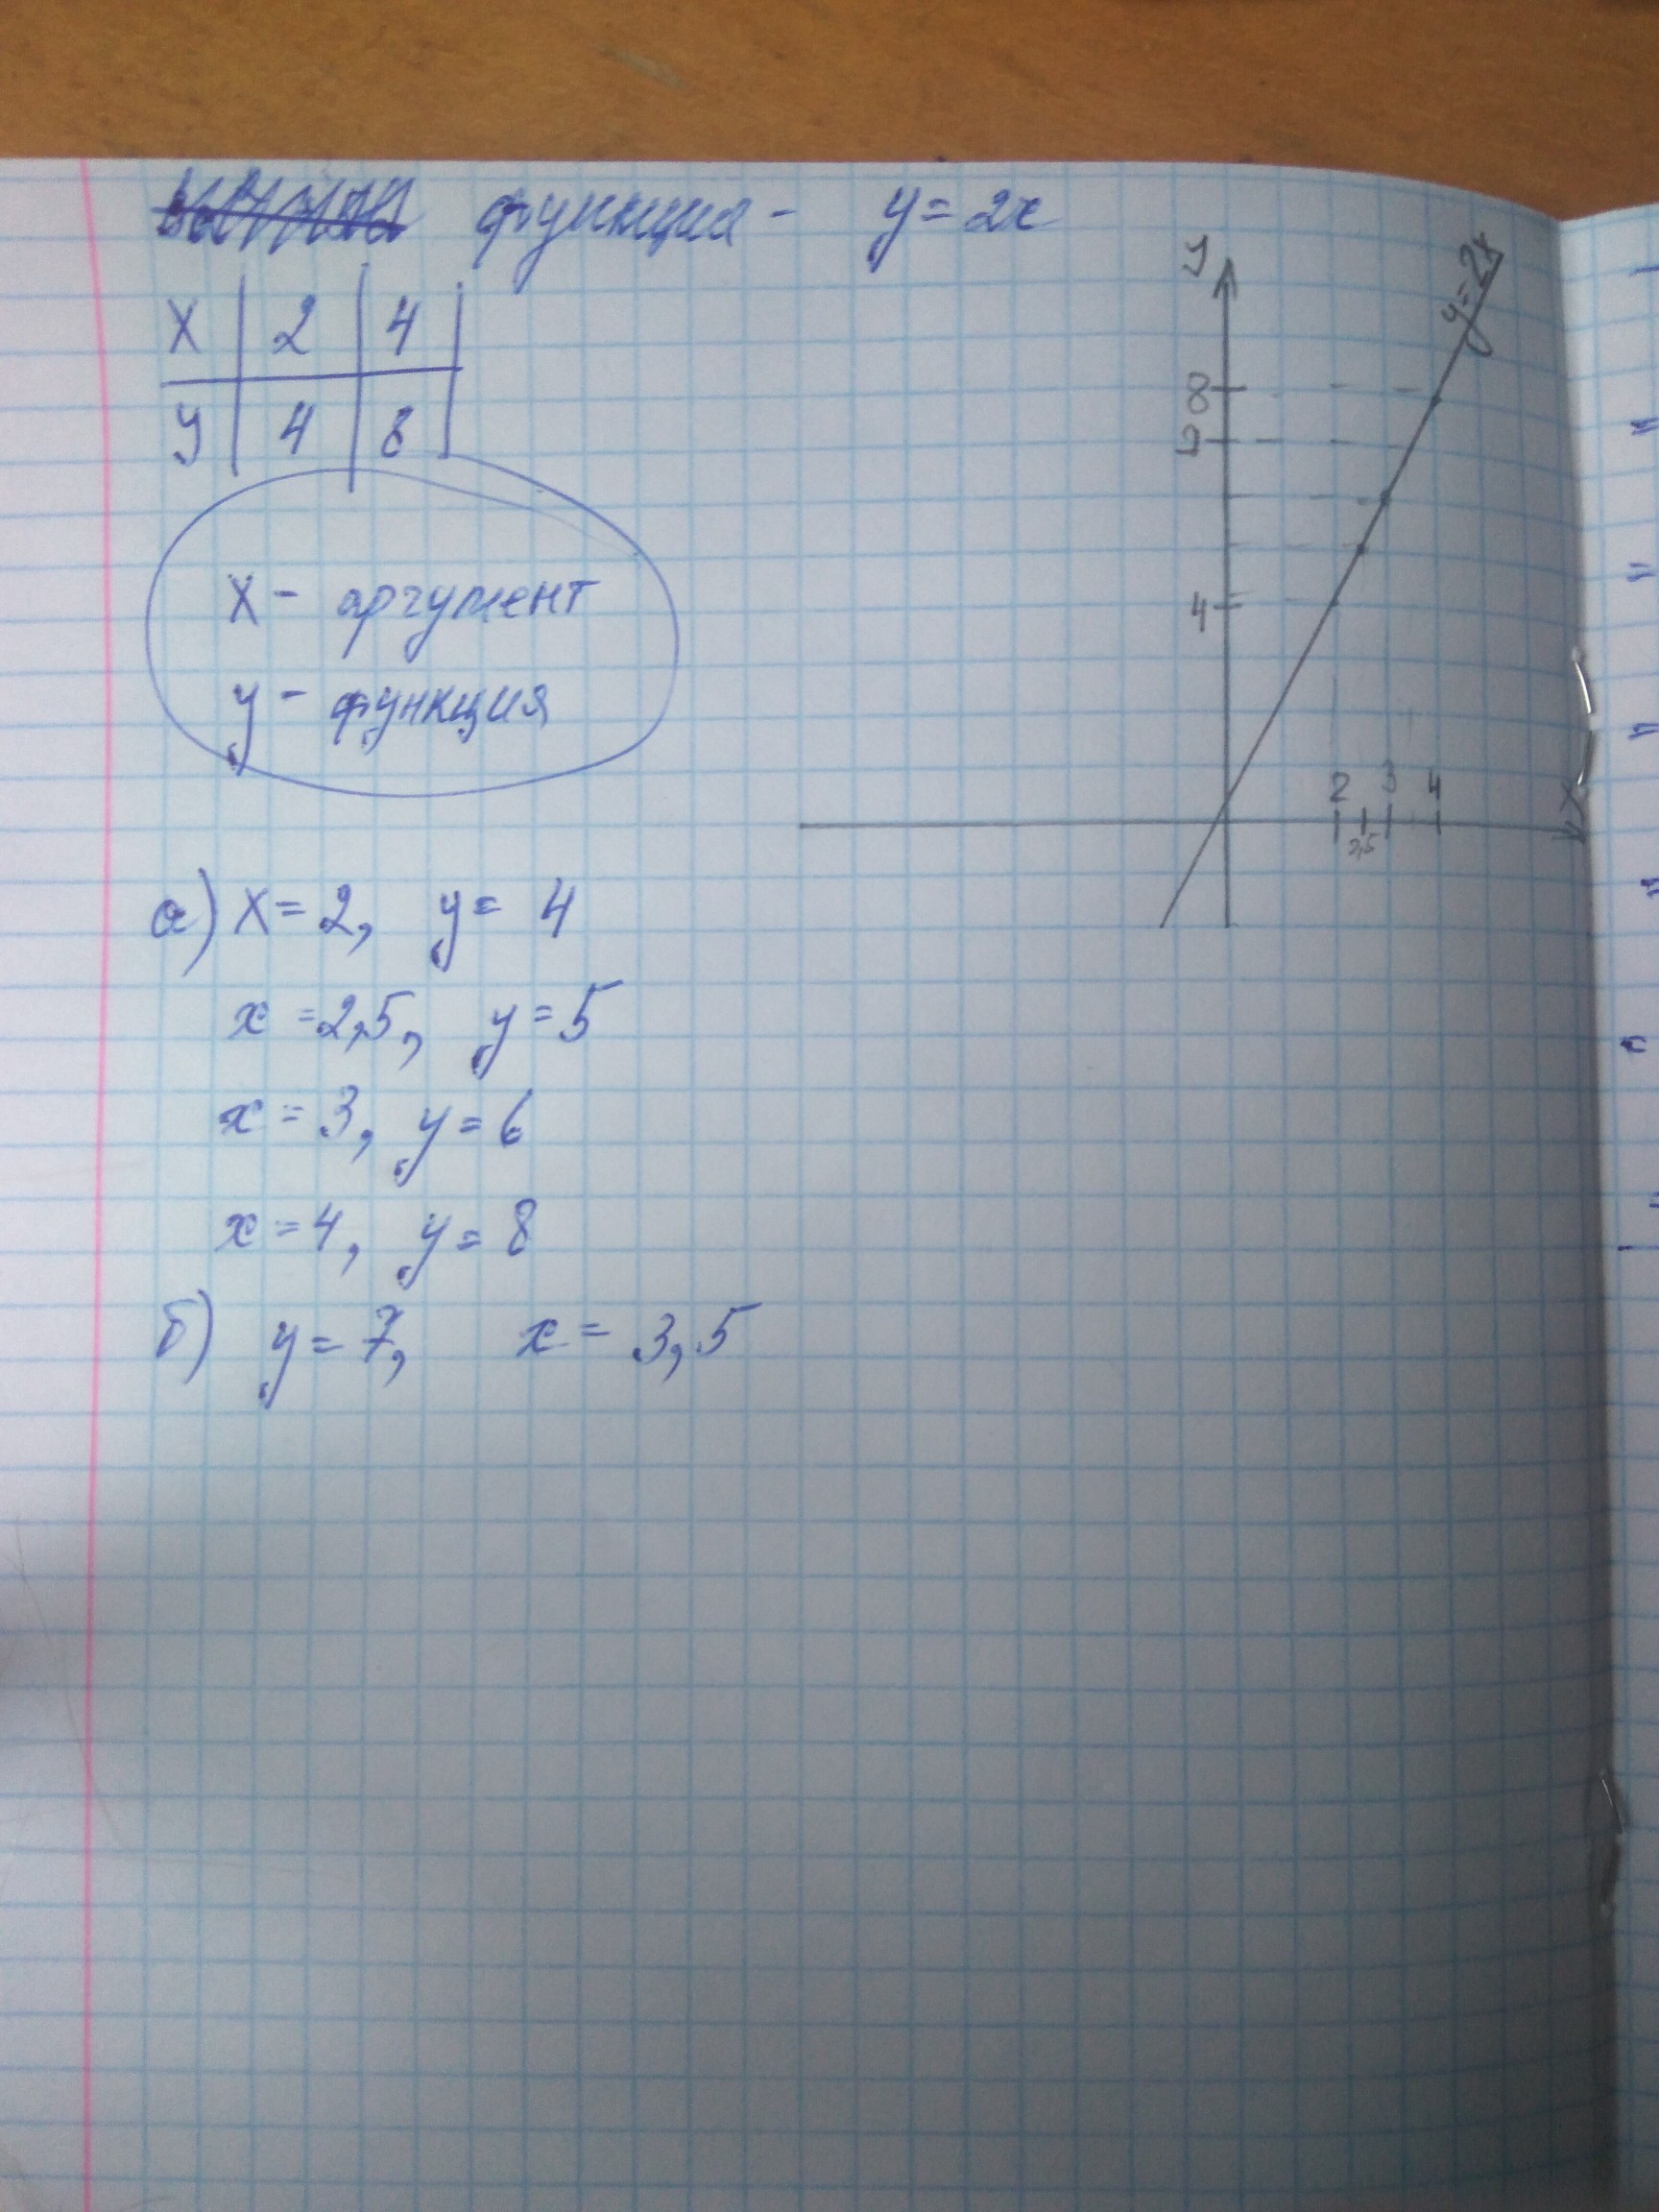 функция - y = 2x
X 2 4
y 4 8
X - аргумент
y - функция
а) X = 2, y = 4
x = 2,5, y = 5
x = 3, y = 6
x = 4, y = 8
б) y = 7, x = 3,5
y
y = 2x
8
4
2 3 4
2,5
X